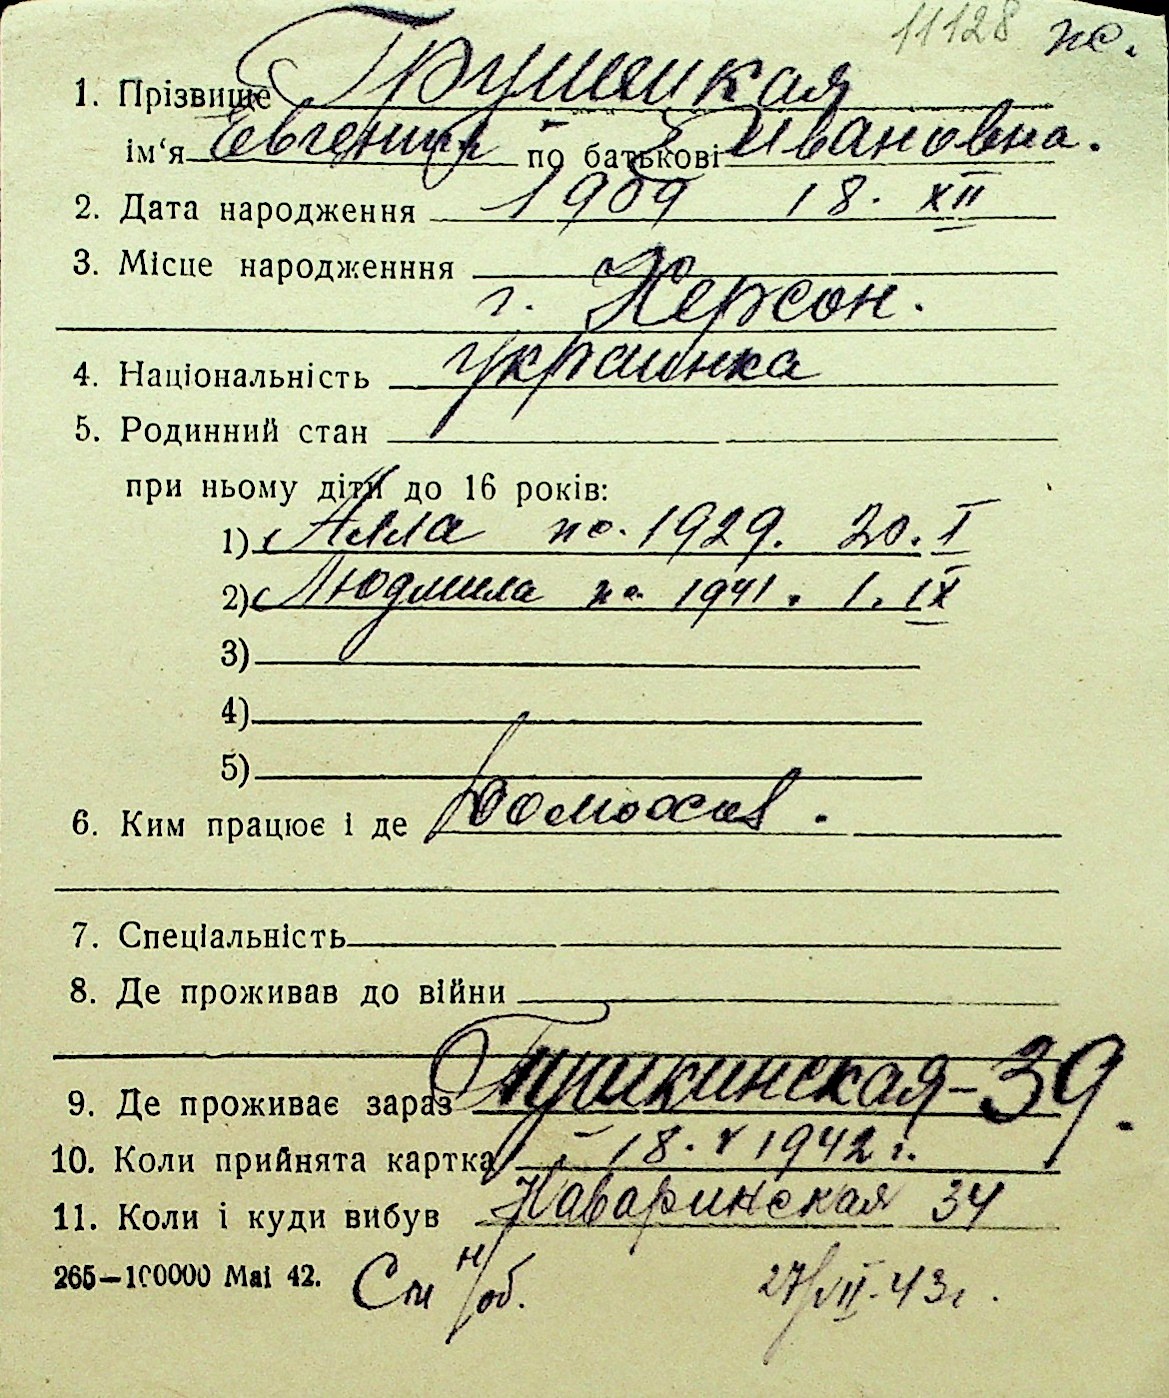 11128 же.
1. Прізвище Грушецкая
ім‘я Евгения по батькові Ивановна.
2. Дата народження 1909 18. XII
3. Місце народженння
г. Херсон.
4. Національність украинка
5. Родинний стан
при ньому діти до 16 років:
1) Алла 1929. 20. I
2) Людмила 1941. 1. IX
3)
4)
5)
6. Ким працює і де Домохоз.
7. Спеціальність
8. Де проживав до війни
9. Де проживає зараз Пушкинская-39.
10. Коли прийнята картка 18. V 1942 г.
11. Коли і куди вибув Наваринская 34
265—100000 Маі 42. См н/об. 27/VII-43г.